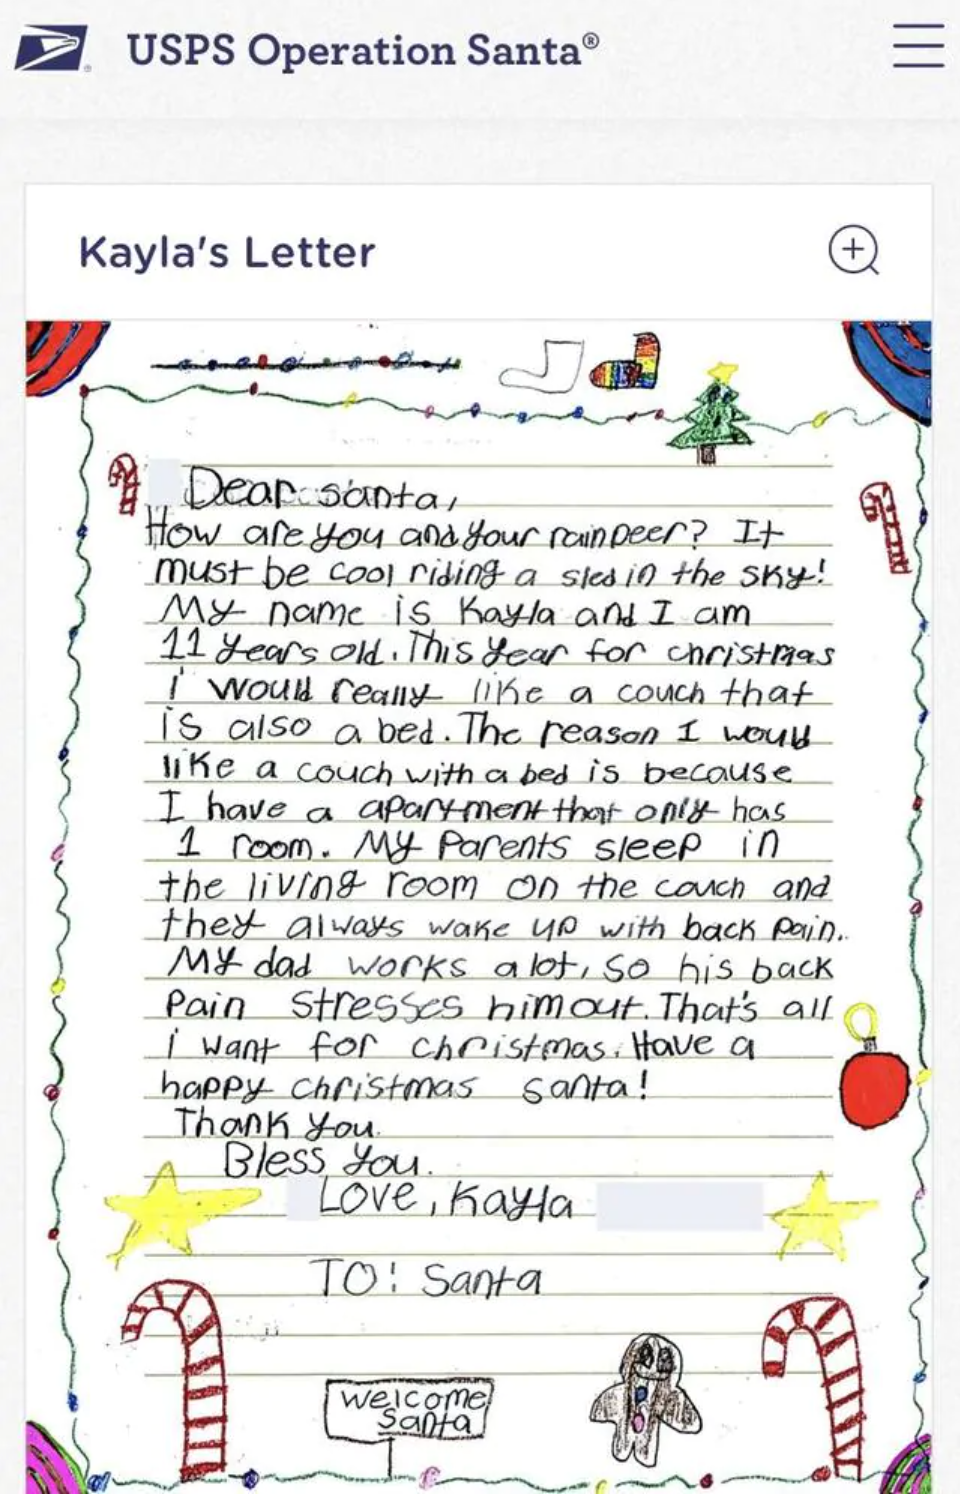 USPS Operation Santa®
Kayla's Letter
Dear santa,
How are you and your rainpeer? It
must be cool riding a sled in the sky!
My name is Kayla and I am
11 years old. This year for christmas
i would really like a couch that
is also a bed. The reason I would
like a couch with a bed is because
I have a apartment that only has
1 room. My Parents sleep in
the living room on the couch and
they always wake up with back pain.
My dad works a lot, so his back
Pain stresses him out. That's all
i want for christmas. Have a
happy christmas santa!
Thank you.
Bless you.
Love, Kayla
TO: Santa
welcome
Santa